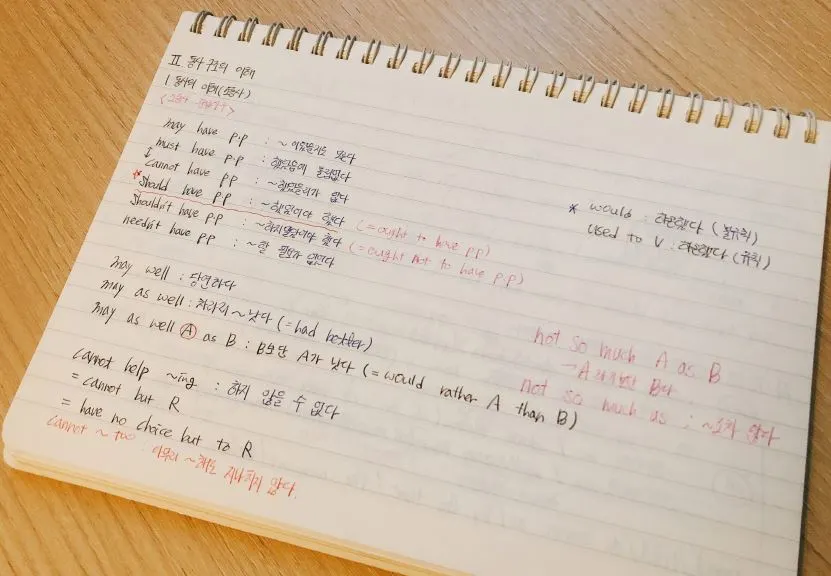 II. 동사 구조의 이해
1. 동사의 이해(조동사)
may have p.p : ~이었을지도 모른다
must have p.p : ~했었음에 틀림없다
cannot have p.p : ~했었을리가 없다
* should have p.p : ~했었어야 했다 (= ought to have p.p)
shouldn't have p.p : ~하지 말았어야 했다 (= ought not to have p.p)
needn't have p.p : ~할 필요가 없었다
* would : 하곤했다 (불규칙)
used to V : 하곤했다 (규칙)
may well : 당연하다
may as well : 차라리 ~ 낫다 (= had better)
may as well A as B : B보단 A가 낫다 (= would rather A than B)
not so much A as B
→ A라기보단 B다
not so much as : ~조차 않다
cannot help ~ing : 하지 않을 수 없다
= cannot but R
= have no choice but to R
cannot ~ too : 아무리 ~해도 지나치지 않다.